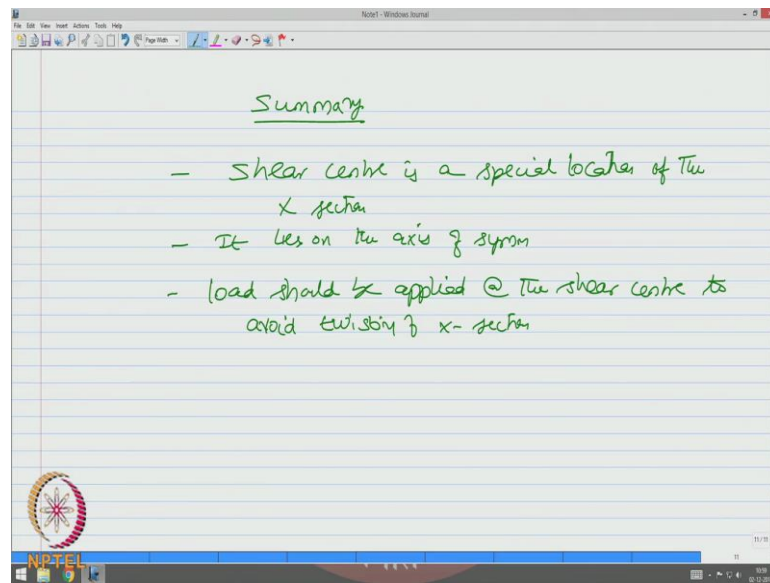 Note1 - Windows Journal
File Edit View Insert Actions Tools Help
Page Width
Summary
- Shear centre is a special location of the
X section
- It lies on the axis of symm
- load should be applied @ The shear centre to
avoid twisting of x-section
NPTEL
11/11
11
10:59